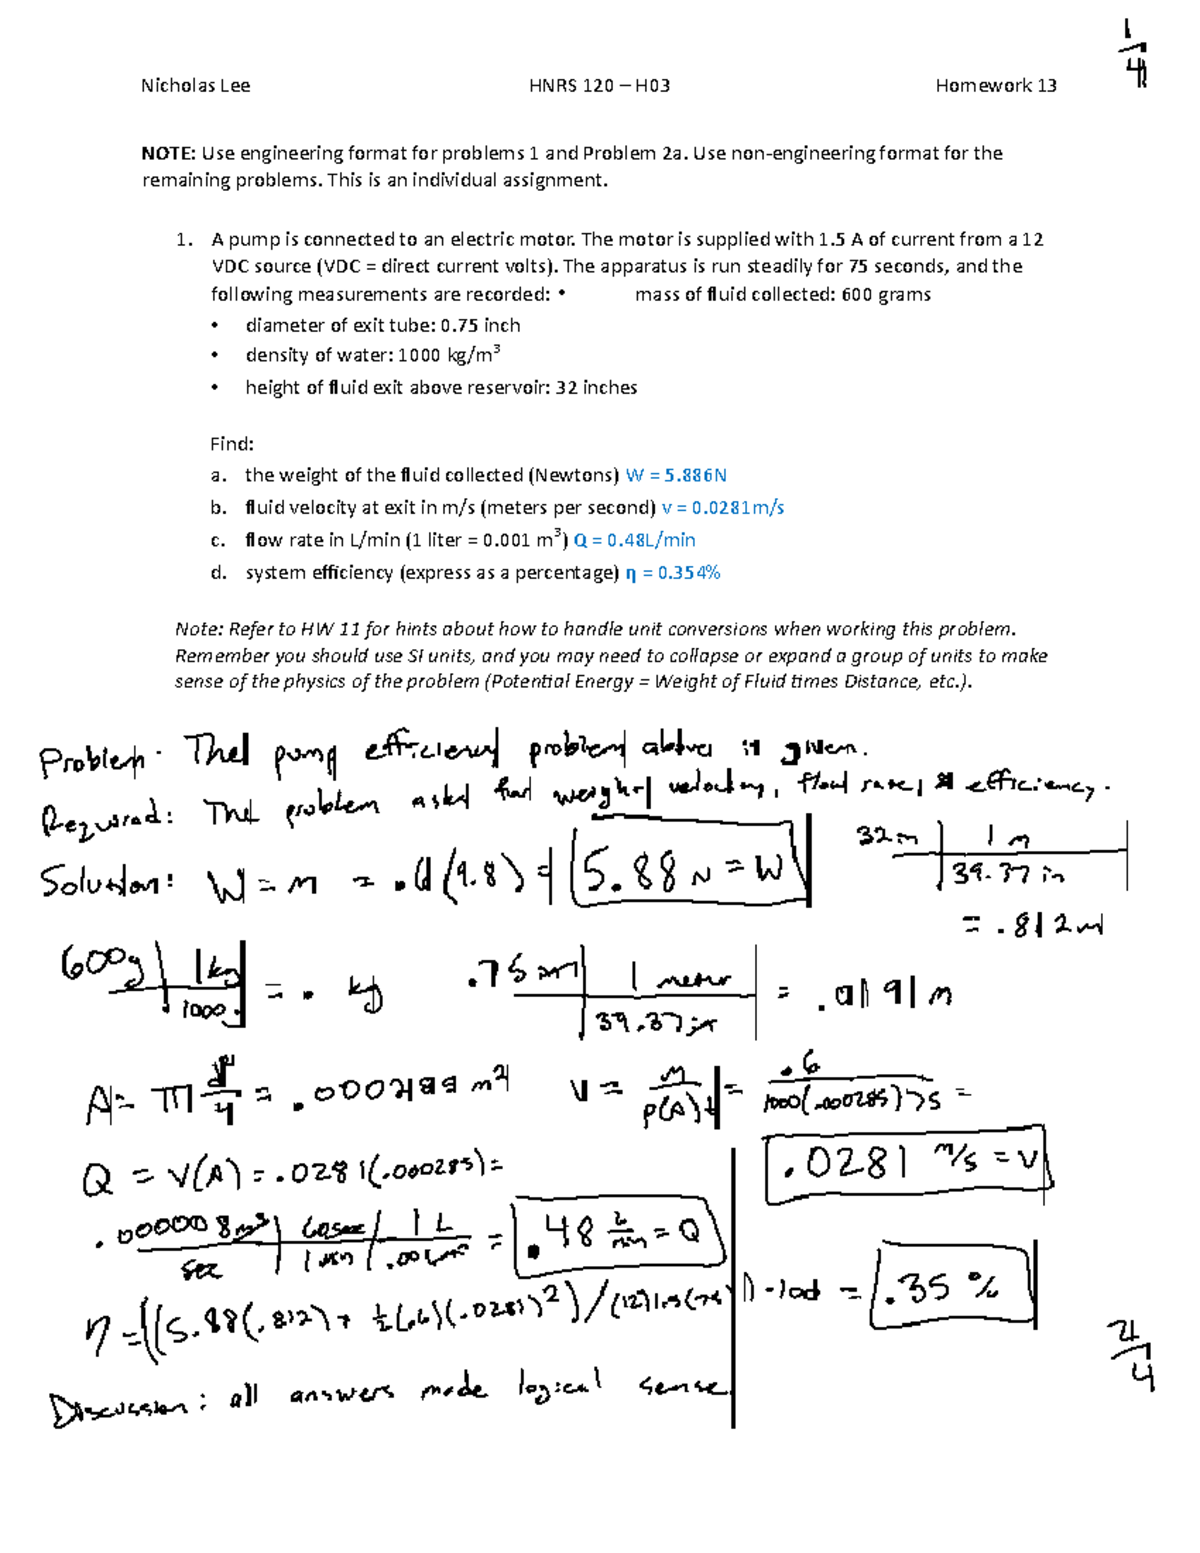 1/4
Nicholas Lee HNRS 120 – H03 Homework 13
NOTE: Use engineering format for problems 1 and Problem 2a. Use non-engineering format for the
remaining problems. This is an individual assignment.
1. A pump is connected to an electric motor. The motor is supplied with 1.5 A of current from a 12
VDC source (VDC = direct current volts). The apparatus is run steadily for 75 seconds, and the
following measurements are recorded: • mass of fluid collected: 600 grams
• diameter of exit tube: 0.75 inch
• density of water: 1000 kg/m³
• height of fluid exit above reservoir: 32 inches
Find:
a. the weight of the fluid collected (Newtons) W = 5.886N
b. fluid velocity at exit in m/s (meters per second) v = 0.0281m/s
c. flow rate in L/min (1 liter = 0.001 m³) Q = 0.48L/min
d. system efficiency (express as a percentage) η = 0.354%
Note: Refer to HW 11 for hints about how to handle unit conversions when working this problem.
Remember you should use SI units, and you may need to collapse or expand a group of units to make
sense of the physics of the problem (Potential Energy = Weight of Fluid times Distance, etc.).
Problem: The pump efficiency problem above is given.
Required: The problem asked for weight, velocity, flow rate, & efficiency.
Solution: W = m = (9.8) = 5.88 N = W 32 in | 1 m
39.37 in
= .812 m
600g | 1kg
1000 = . kg .75 | 1 meter
39.37 in = .0191 m
A = π /4 = m² V = m / ρ(A)t = .6 / 1000(.000285)75 =
.0281 m/s = V
Q = V(A) = .0281(.000285) =
.000008 m³ / sec | 60 sec / 1 min | 1 L = .48 L/min = Q
η = ((5.88(.812) + ½(.6)(.0281)²) / (12)1.5(75) = .35 %
Discussion: all answers made logical sense.